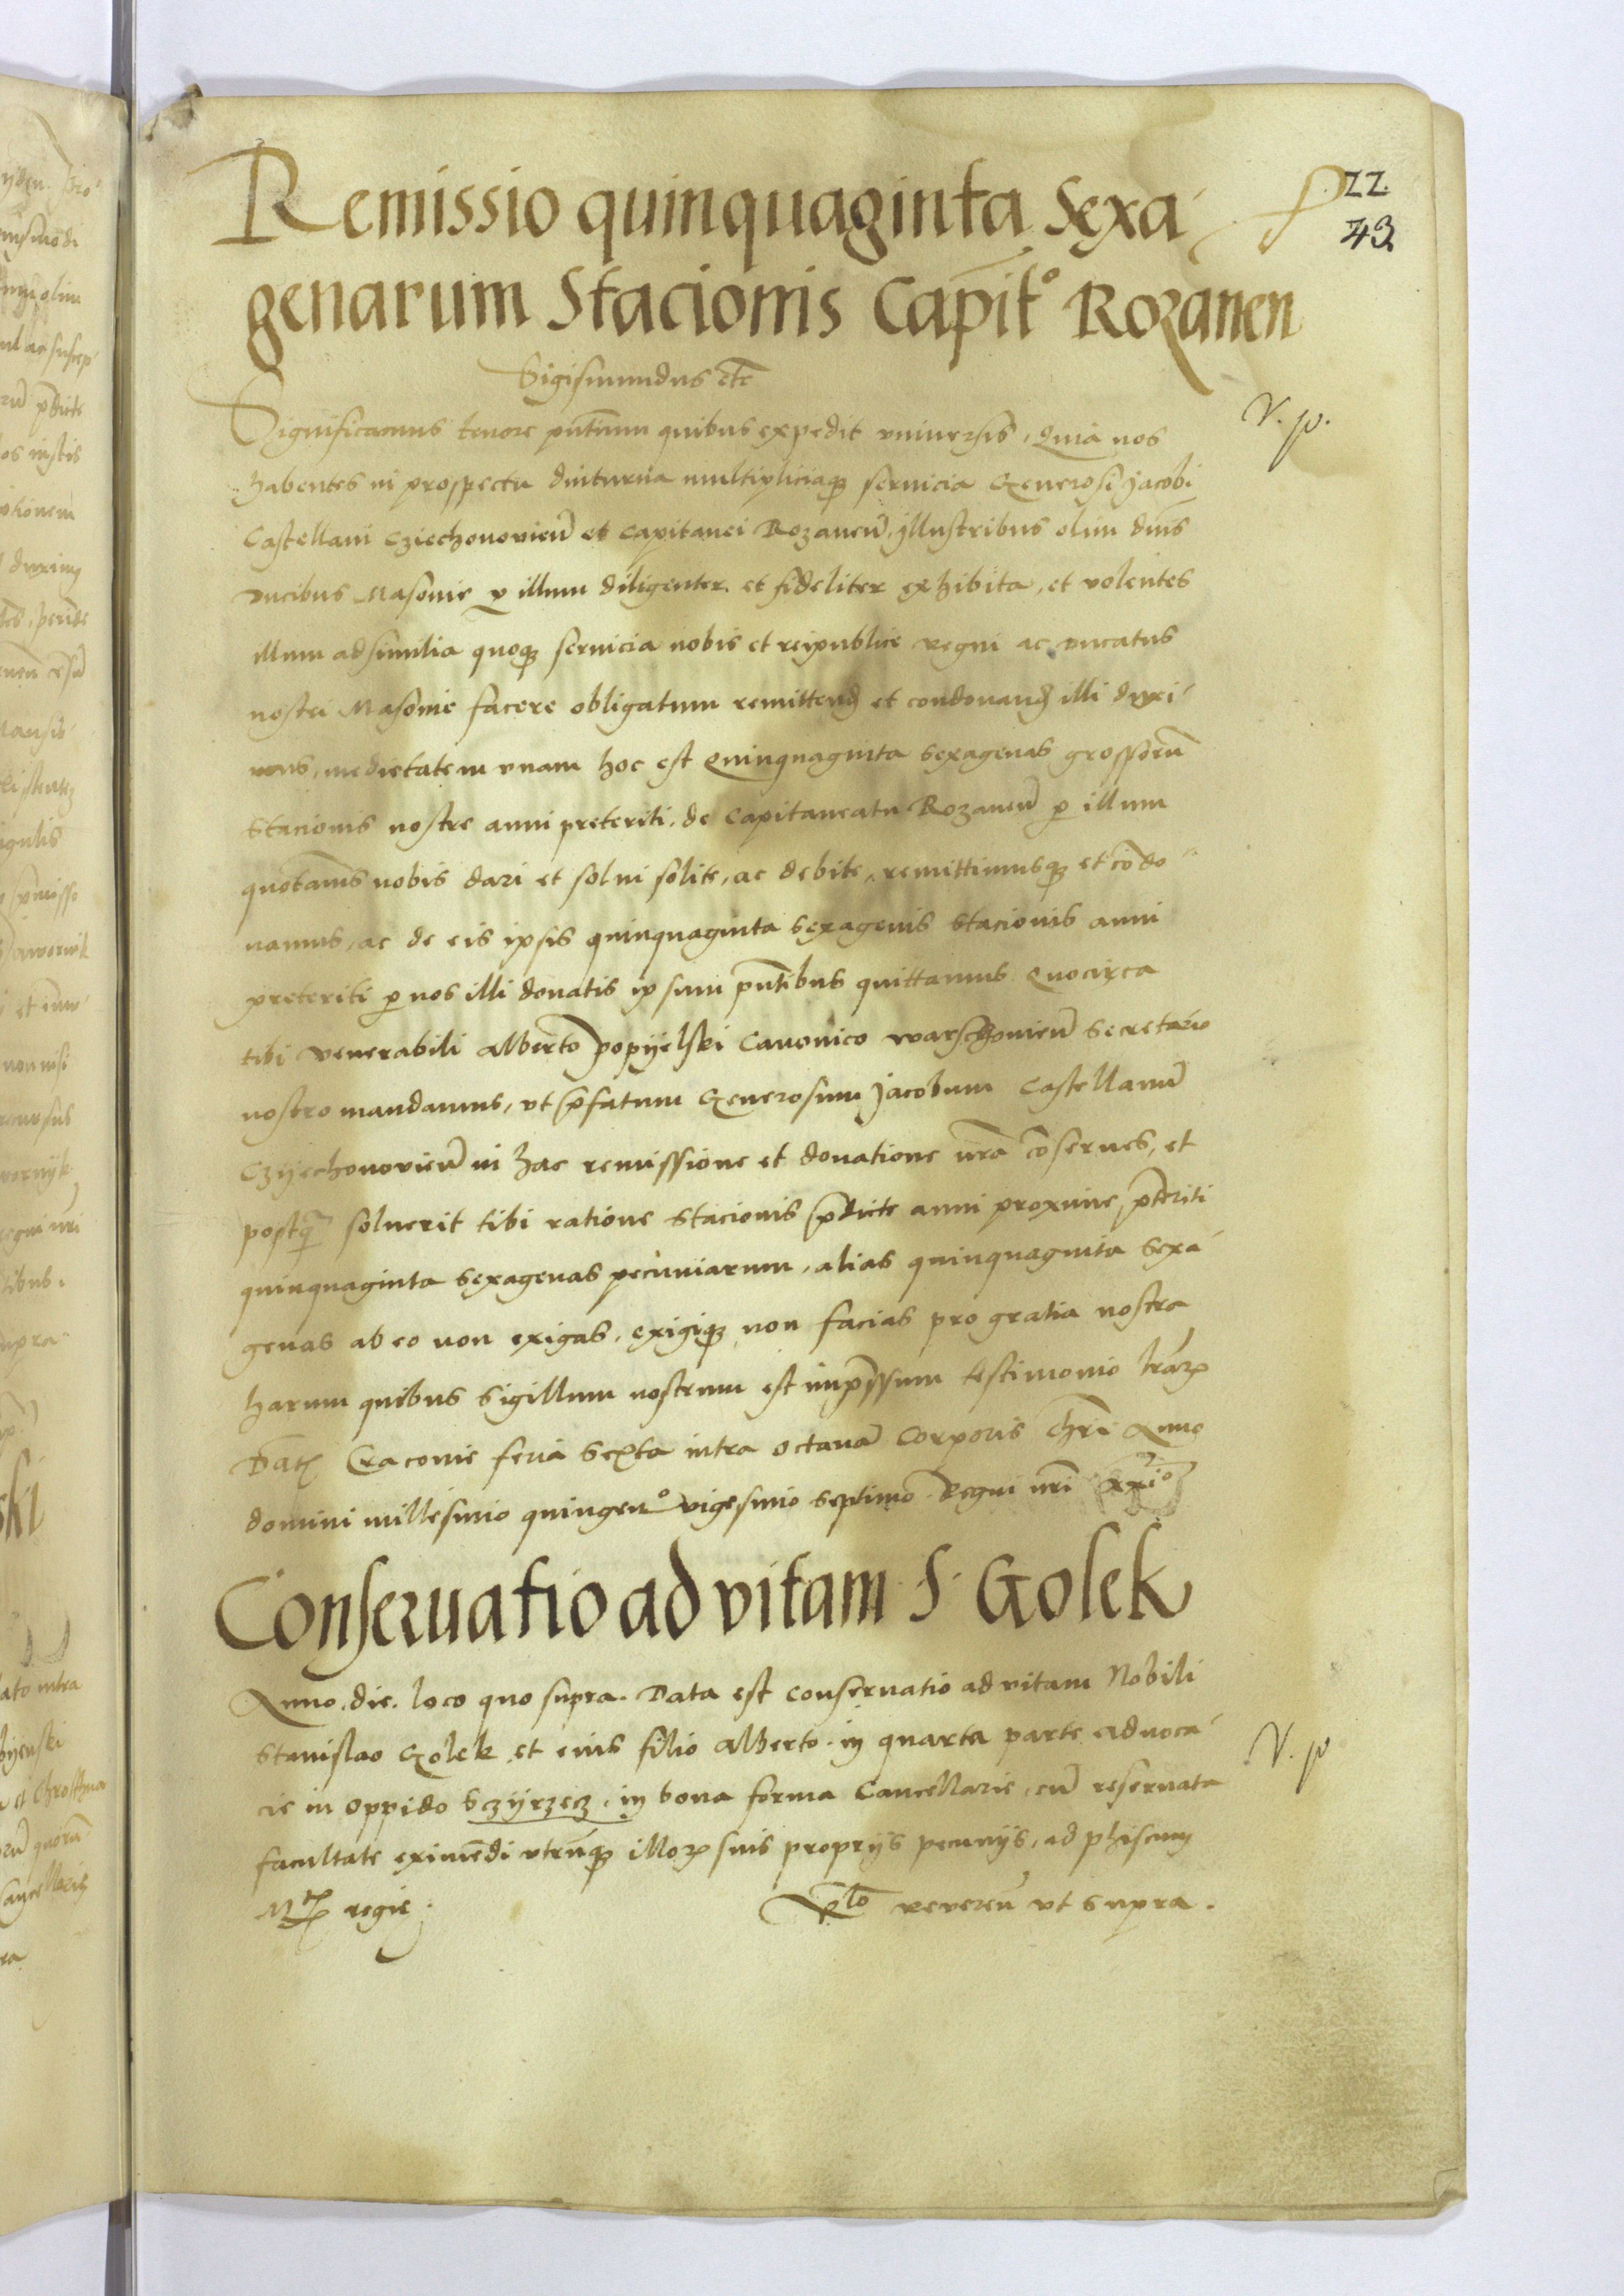 22.
43.
Remissio quinquaginta Sexa
genarum Stacionis Capit° Rozanen
Sigismundus etc
Significamus tenore pñtium quibus expedit vniuersis, Quia nos
habentes in prospectu diuturna multipliciaqꝫ seruicia Generosi Jacobi
Castellani Cziechonovieñ et Capitanei Rozaneñ, illustribus olim dñis
Ducibus Masouie ꝑ illum diligenter et fideliter exhibita, et volentes
illum ad similia quoqꝫ seruicia nobis et reipublice regni ac Ducatus
nostri Masouie facere obligatum remittendꝫ et condonandꝫ illi duxi
mus, medietatem vnam hoc est Quinquaginta sexagenas grossorũ
Stacionis nostre anni preteriti, de Capitaneatu Rozaneñ ꝑ illum
quotannis nobis dari et solui solite, ac debite, remittimusqꝫ et cõdo
namus, ac de eis ipsis quinquaginta sexagenis stacionis anni
preteriti ꝑ nos illi donatis ipsum pñtibus quittamus Quocirca
tibi venerabili Alberto popijelski Canonico warschouieñ Secretario
nostro mandamus, vt p̃fatum Generosum Jacobum Castellanũ
Czijechonovieñ in hac remissione et donatione nr̃a cõserues, et
postq̃ soluerit tibi ratione Stacionis p̃dicte anni proxime p̃teriti
quinquaginta sexagenas pecuniarum, alias quinquaginta sexa
genas ab eo non exigas, exigiqꝫ non facias pro gratia nostra
harum quibus Sigillum nostrum est imp̃ssum testimonio lr̃aꝝ
Datꝫ Cracouie feria Sexta intra octauã Corporis Chr̃i Anno
domini millesimo quingen° vigesimo septimo Regni nr̃i xxi°
Conseruatio ad vitam S. Golek
Anno, die, loco quo supra. Data est conseruatio ad vitam Nobili
Stanislao Golek et eius filio Alberto in quarta parte aduoca
cie in oppido Sczijrzecz, in bona forma Cancellarie, cũ reseruata
facultate eximẽdi vtrũqꝫ illoꝝ suis proprijs pecunijs, ad phiscum
Mtꝫ regie.
Rlo reuereñ vt supra.
V. p.
V. p